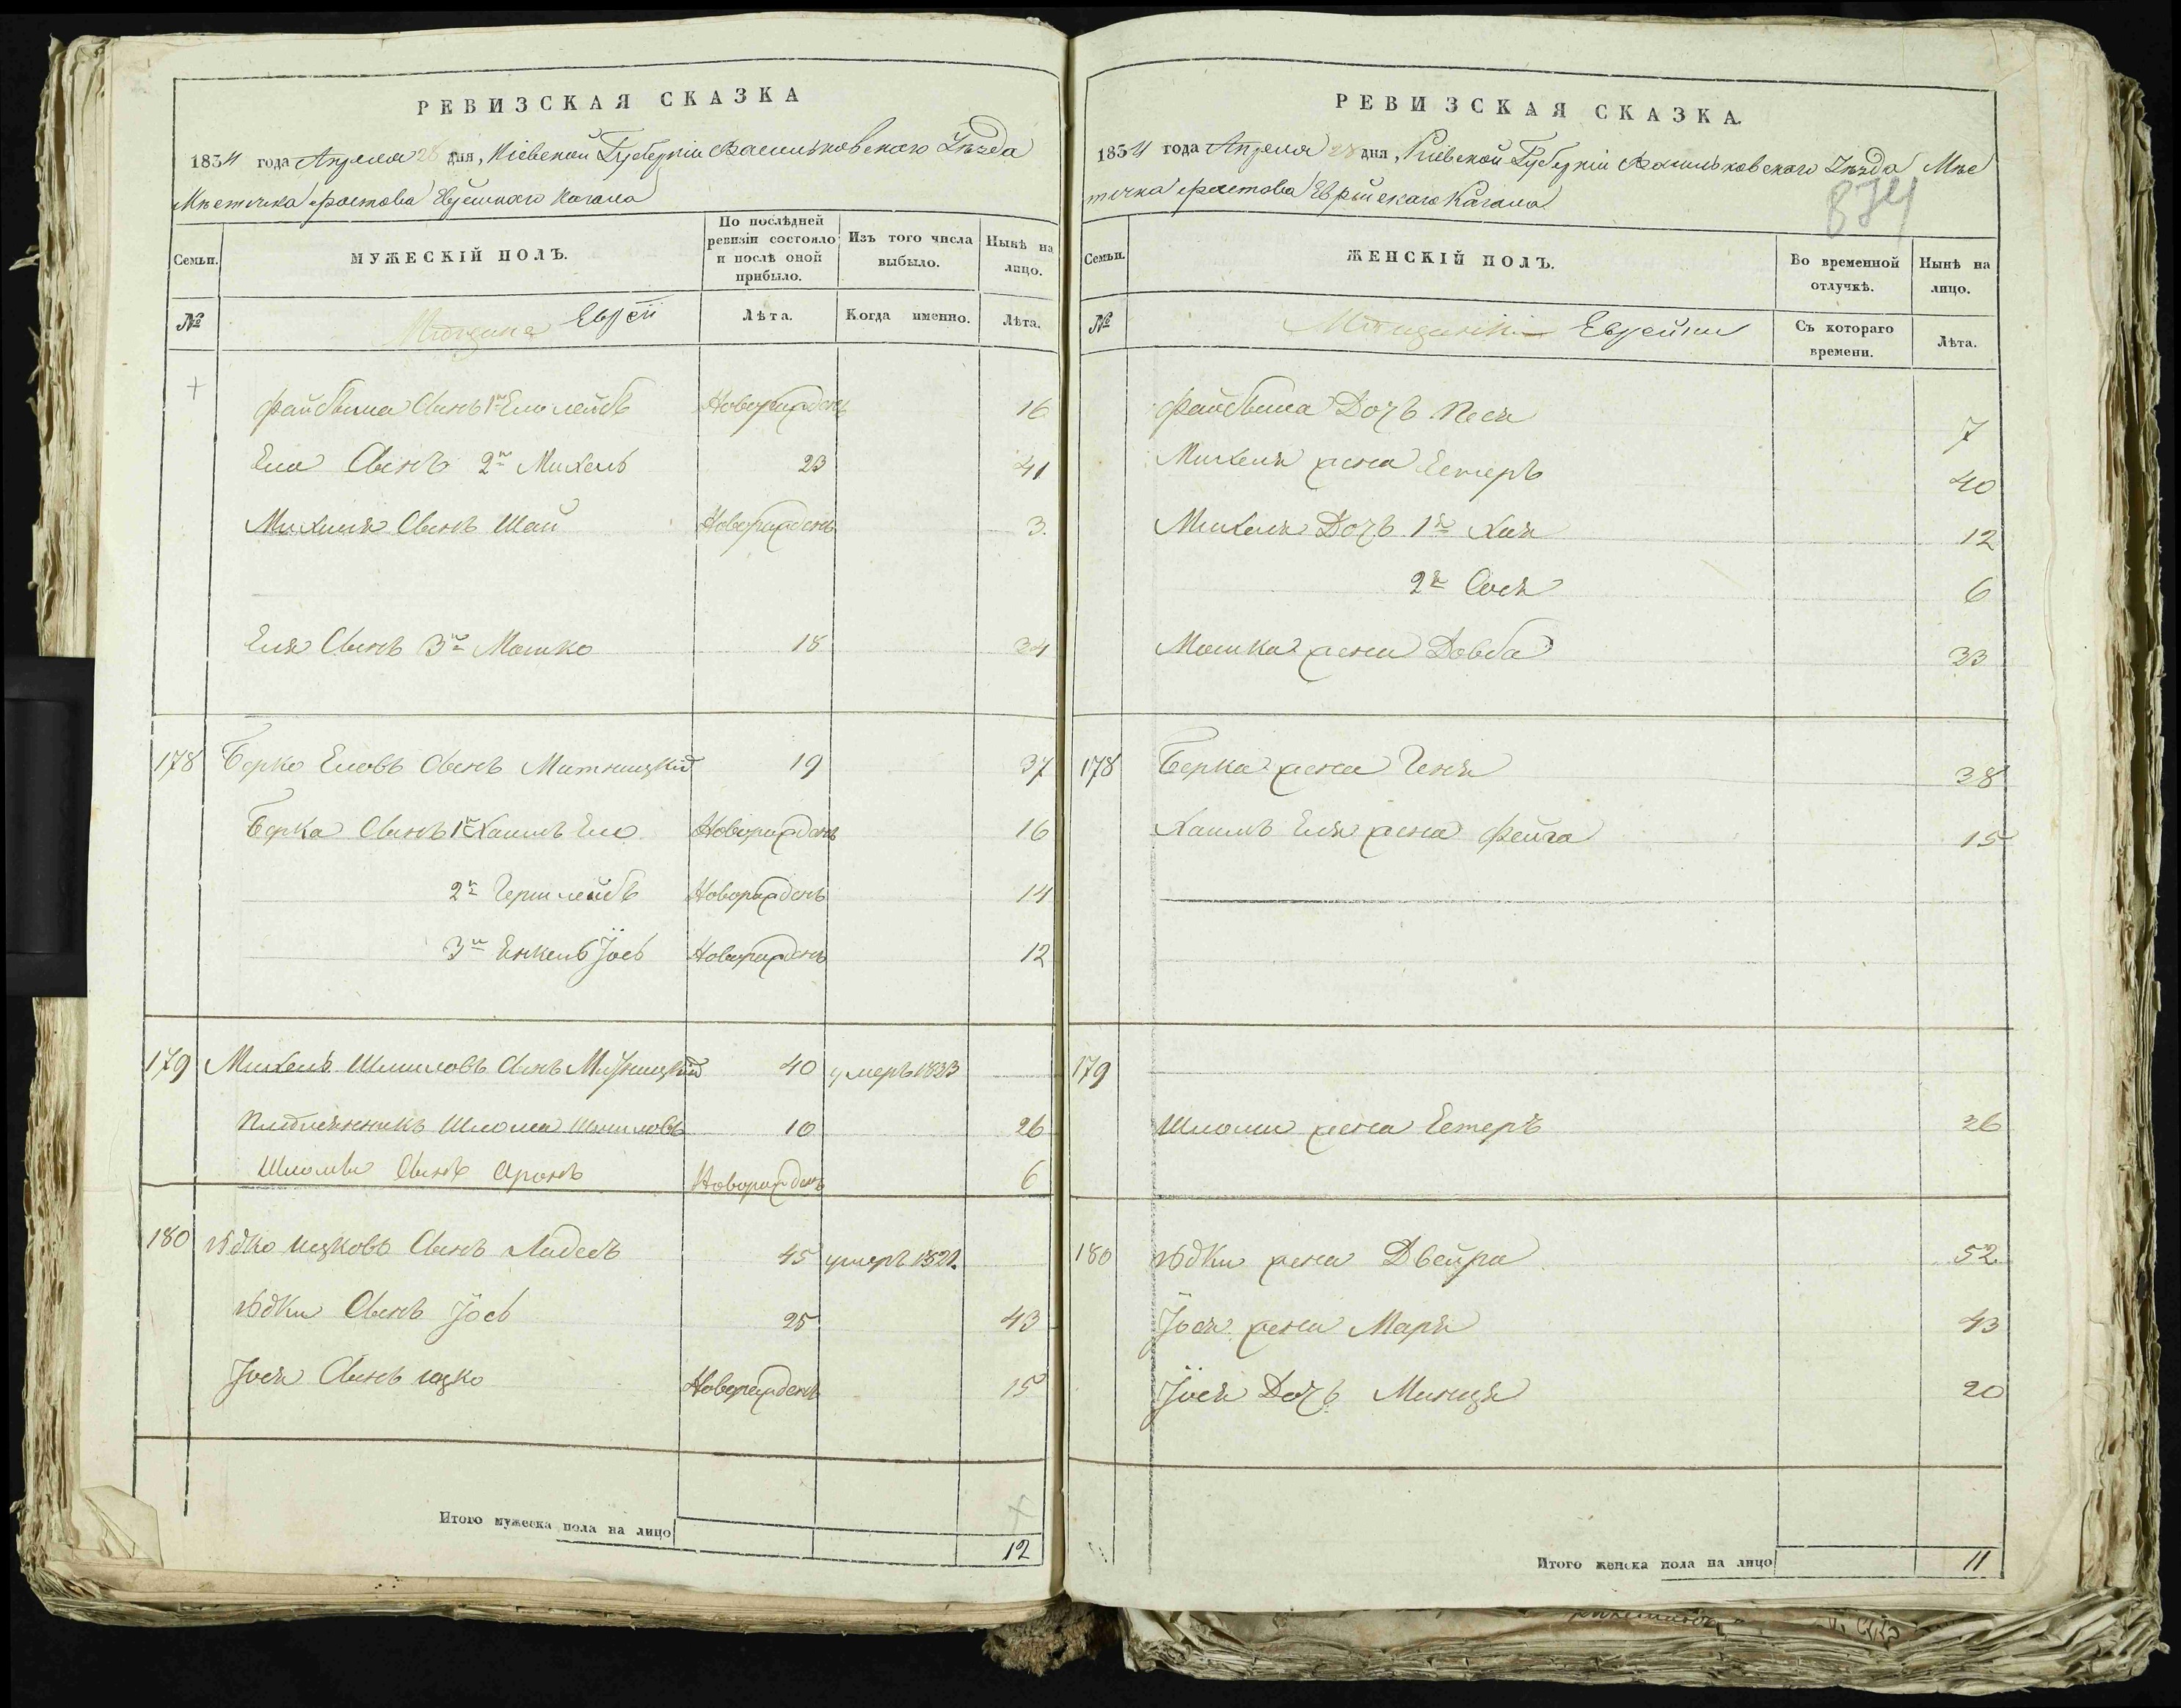 РЕВИЗСКАЯ СКАЗКА
1834 года Апреля 28 дня, Кіевской Губерніи Васильковскаго Уѣзда
Мѣстечка Фастова Еврейскаго Кагала
Семьи.
МУЖЕСКІЙ ПОЛЪ.
По послѣдней ревизіи состояло и послѣ оной прибыло.
Изъ того числа выбыло.
Нынѣ на лицо.
№
Мѣщане Евреи
Лѣта.
Когда именно.
Лѣта.
Файвиша Сынъ 1й Ельлейбъ Новорожденъ 16
Еля Сынъ 2й Михель 23 41
Михеля Сынъ Шай Новорожденъ 3.
Еля Сынъ 3й Мошко 18 34
178 Берко Елевъ Сынъ Митницкій 19 37
Берка Сынъ 1й Хаимъ Еля Новорожденъ 16
2й Гершлейбъ Новорожденъ 14
3й Енкель Іось Новорожденъ 12
179 Михель Шмиловъ Сынъ Митницкій 40 умеръ 1833
Племянникъ Шлома Шмиловъ 10 26
Шломы Сынъ Аронъ Новорожденъ 6
180 Юдко Ицковъ Сынъ 45 умеръ 1821.
Юдки Сынъ Іось 25 43
Іося Сынъ Ицко Новорожденъ 15
Итого мужеска пола на лицо 12
РЕВИЗСКАЯ СКАЗКА.
1834 года Апреля 28 дня, Кіевской Губерніи Васильковскаго Уѣзда Мѣс
течка Фастова Еврейскаго Кагала
874
Семьи.
ЖЕНСКІЙ ПОЛЪ.
Во временной отлучкѣ.
Нынѣ на лицо.
№
Мѣщанки Еврейки
Съ котораго времени.
Лѣта.
Файвиша Дочь Песя 7
Михеля жена Естеръ 40
Михеля Дочь 1я Хая 12
2я Сося 6
Мошка жена Довба 33
178 Берка жена Геня 38
Хаимъ Еля жена Фейга 15
179
Шломы жена Естеръ 26
180 Юдки жена Двейра 52
Іося жена Маря 43
Іося Дочь Минця 20
Итого женска пола на лицо 11